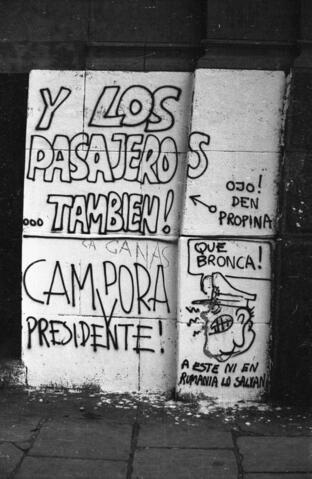 Y LOS
PASAJEROS
... TAMBIEN!
OJO!
DEN
PROPINA
LA GANAS
CAMPORA
PRESIDENTE!
QUE
BRONCA!
A ESTE NI EN
RUMANIA LO SALVAN